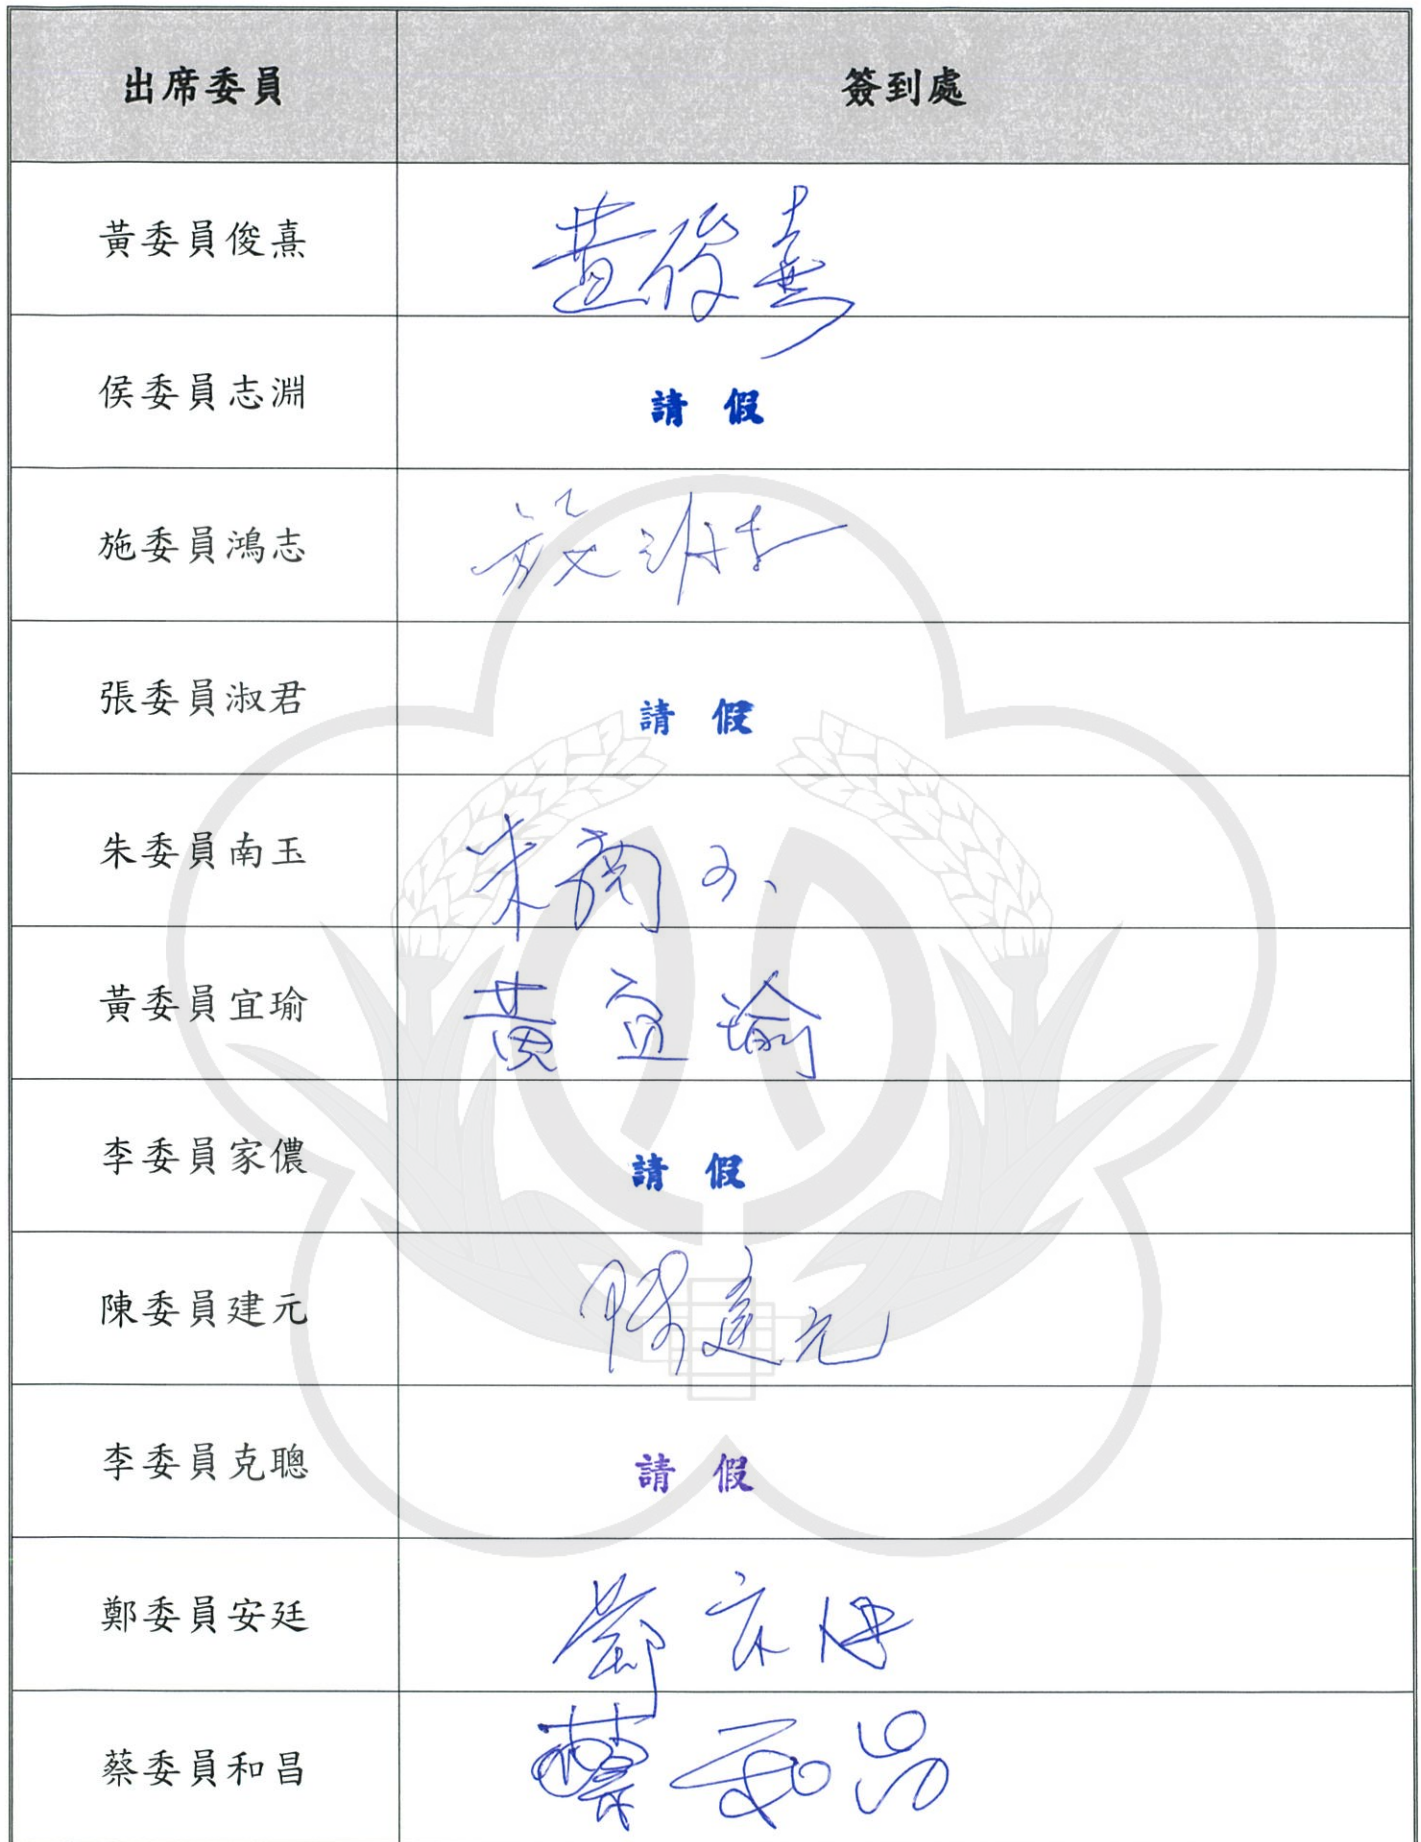 出席委員 簽到處
黃委員俊熹 黃俊熹
侯委員志淵 請假
施委員鴻志 施鴻志
張委員淑君 請假
朱委員南玉 朱南玉
黃委員宜瑜 黃宜瑜
李委員家儂 請假
陳委員建元 陳建元
李委員克聰 請假
鄭委員安廷 鄭安廷
蔡委員和昌 蔡和昌